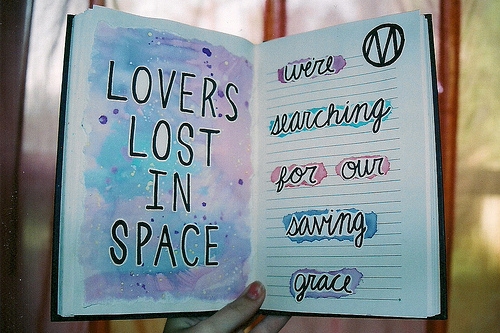 LOVERS
LOST
IN
SPACE
M
were
searching
for our
saving
grace